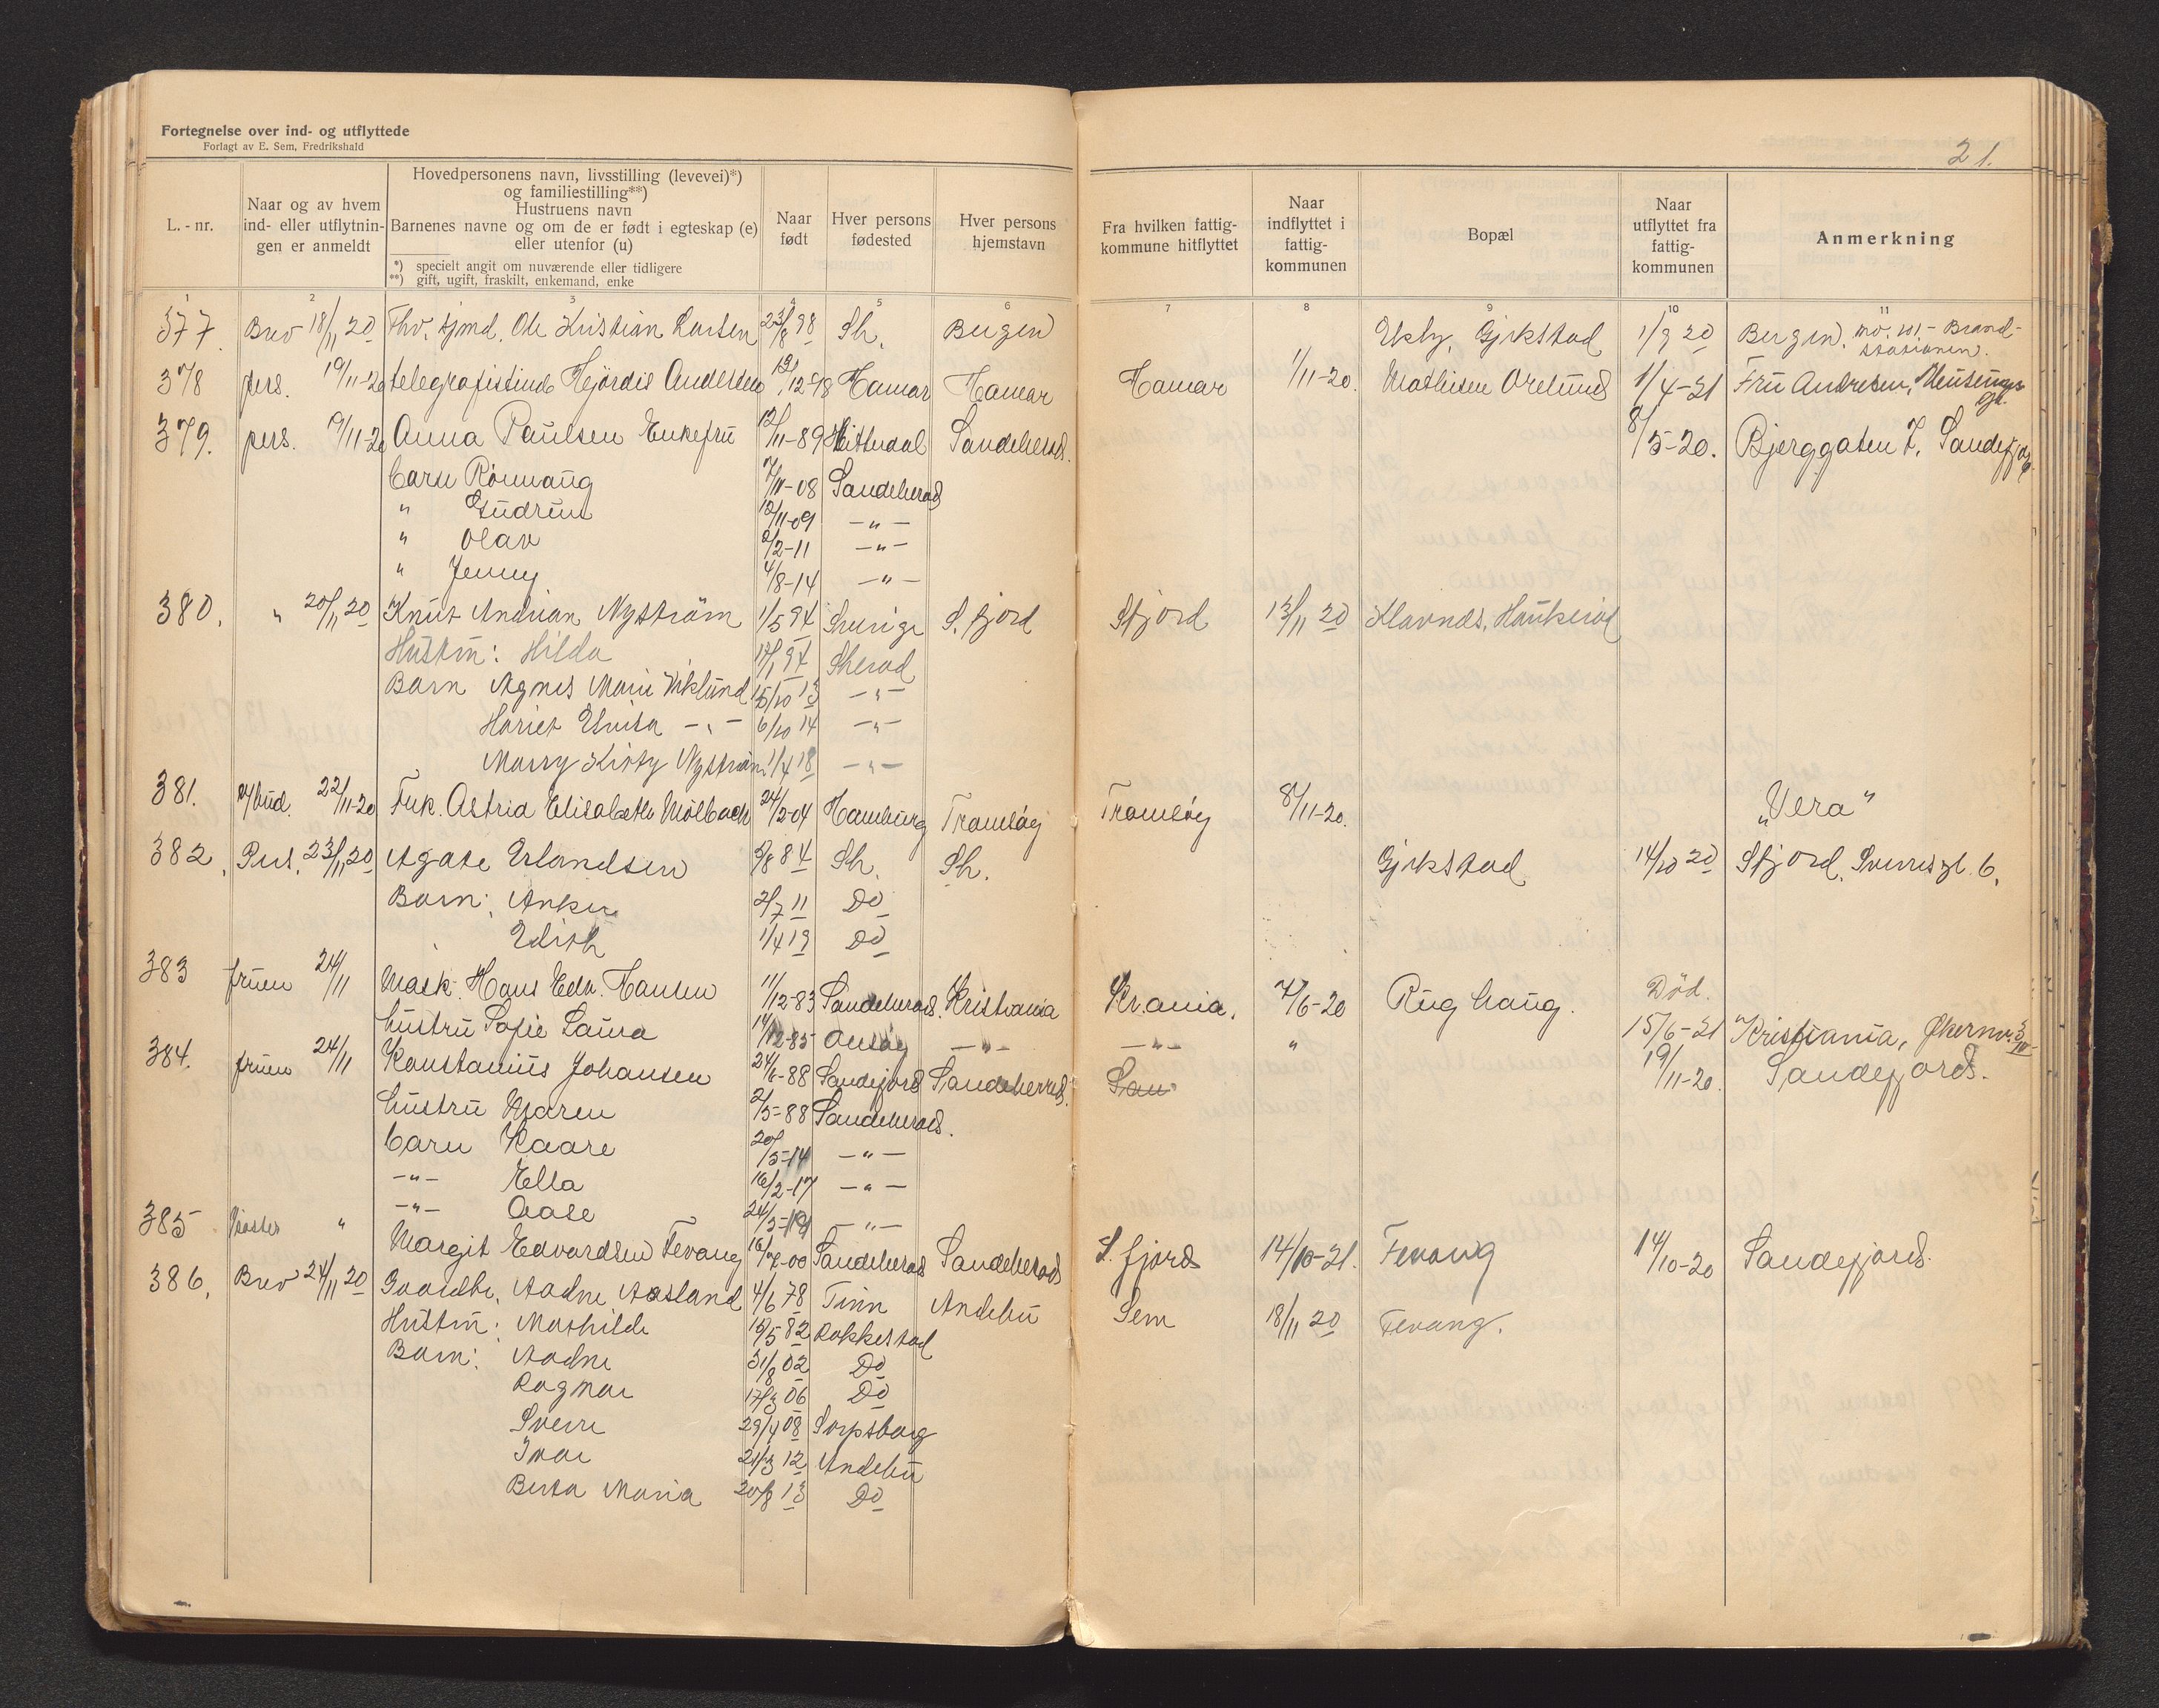 Fortegnelse over ind- og utflyttede
Forlagt av E. Sem, Fredrikshald
21.
L.-nr.
Naar og av hvem ind- eller utflytnin-gen er anmeldt
Hovedpersonens navn, livsstilling (levevei)*) og familiestilling**)
Hustruens navn
Barnenes navne og om de er født i egteskap (e) eller utenfor (u)
*) specielt angit om nuværende eller tidligere
**) gift, ugift, fraskilt, enkemand, enke
Naar født
Hver persons fødested
Hver persons hjemstavn
Fra hvilken fattig-kommune hitflyttet
Naar indflyttet i fattig-kommunen
Bopæl
Naar utflyttet fra fattig-kommunen
Anmerkning
1 2 3 4 5 6 7 8 9 10 11
377. Brev 18/11 20 Fhv. sjmd. Ole Kristian Larsen 23/8 98 Sh. Bergen Gjekstad 1/9 20 Bergen. Brand-stasionen.
378 pers. 19/11-20 telegrafistinde Hjördis Andersen Hamar Hamar Hamar 1/11-20. Mathisen Orelund 1/4-21 Fru Andresen,
379. pers. 19/11-20 Anna Paulsen Enkefru 12/11-89 Hitterdal Sandeherad. 8/5-20. Bjerggaten 7, Sandefjord
barn Rönnaug 7/11-08 Sandeherad
" Gudrun 12/11-09 -"-
" Olav 2/2-11 -"-
" Jenny 4/8-14 -"-
380. " 20/11 20 Knut Andrian Nyström 1/5 94 Sverige S.fjord Sfjord 13/11 20 Klavnes, Haukerød
Hustru: Hilda 94 Sherad
Barn Agnes Marie Viklund 15/10 13 -"-
Hariet Elvira -"- 6/10 14 -"-
Marry Kirsty Nyström 1/4 18 -"-
381. 22/11-20 Frk. Astrid Elisabeth Mölbach 24/2-04 Hamburg Tromsöy Tromsöy 8/11-20. "Vera"
382. Pers. 23/11 20 Agate Erlandsen 5/8 84 Sh. Sh. Gjekstad 14/10 20 Sfjord, Sverresgt. 6.
Barn: Anker 2/7 11 Do
Edith 1/4 19 Do
383 fruen 24/11 Mask. Hans Edv. Hansen 11/12-83 Sandeherad. Kristiania Kr.ania. 7/6-20 Rughaug. Död.
hustru Sofie Laura 14/12-85 Onsöy -"- -"- " 15/6-21 Kristiania,
384. fruen 24/11 Konstanius Johansen Sandefjord Sandeherred. San 19/11-20. Sandefjord.
hustru Maren 2/5-88 Sandeherad.
barn Kaare 20/5-14 -"-
-"- Ella 16/2-17 -"-
-"- Aase -"-
385 " Margit Edvardsen Fevang Sandeherad Sandeherad S.fjord 14/10-21. Fevang 14/10-20 Sandefjord.
386. Brev 24/11 20 Gaardbr. Aadne Aasland 4/6 78 Tinn Andebu Sem 18/11 20 Fevang.
Hustru: Mathilde 82 Rakkestad
Barn: Aadne 31/8 02 Do
Ragnar 17/3 06 Do
Sverre 29/4 08 Sarpsborg
Ivar 21/3 12 Andebu
Berta Maria 20/8 13 Do